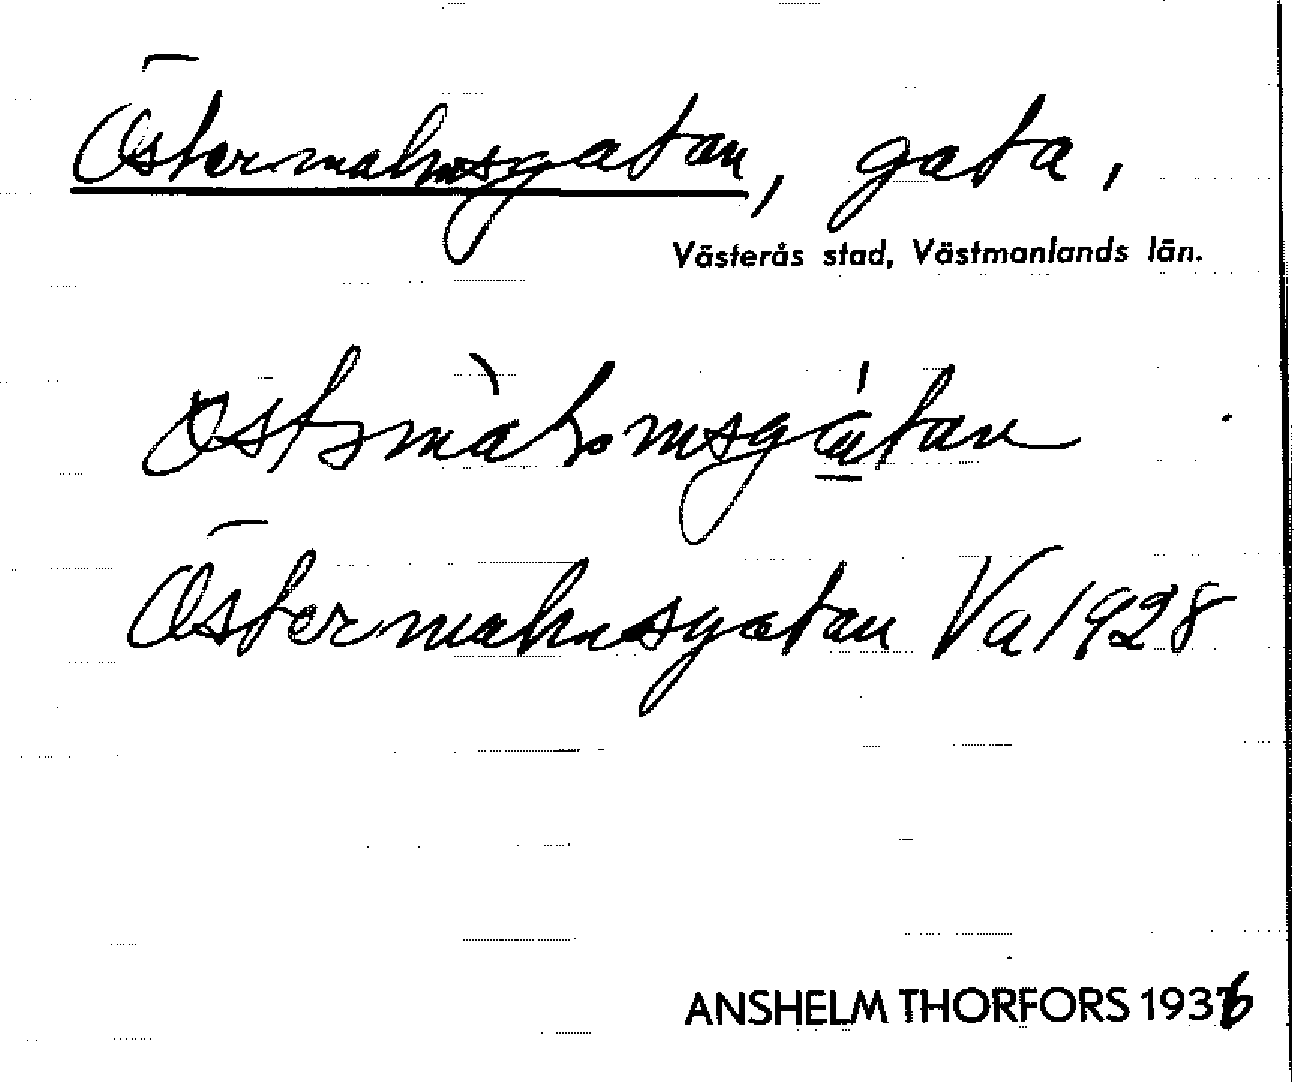 Östermalmsgatan, gata,
Västerås stad, Västmanlands län.
Östermalmsgatan Va 1928
ANSHELM THORFORS 1936